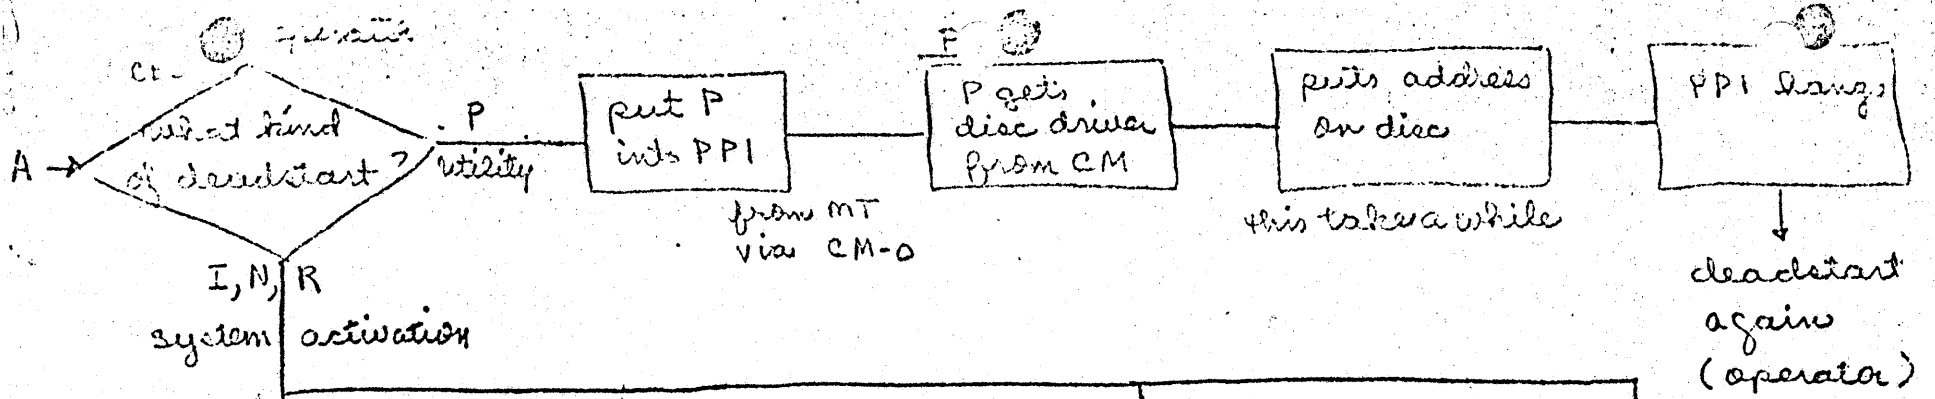 operator
A →
what kind
of deadstart?
P
utility
put P
into PP1
from MT
via CM-0
P
P gets
disc driver
from CM
puts address
on disc
this takes a while
PP1 hangs
deadstart
again
(operator)
I, N, R
system activation